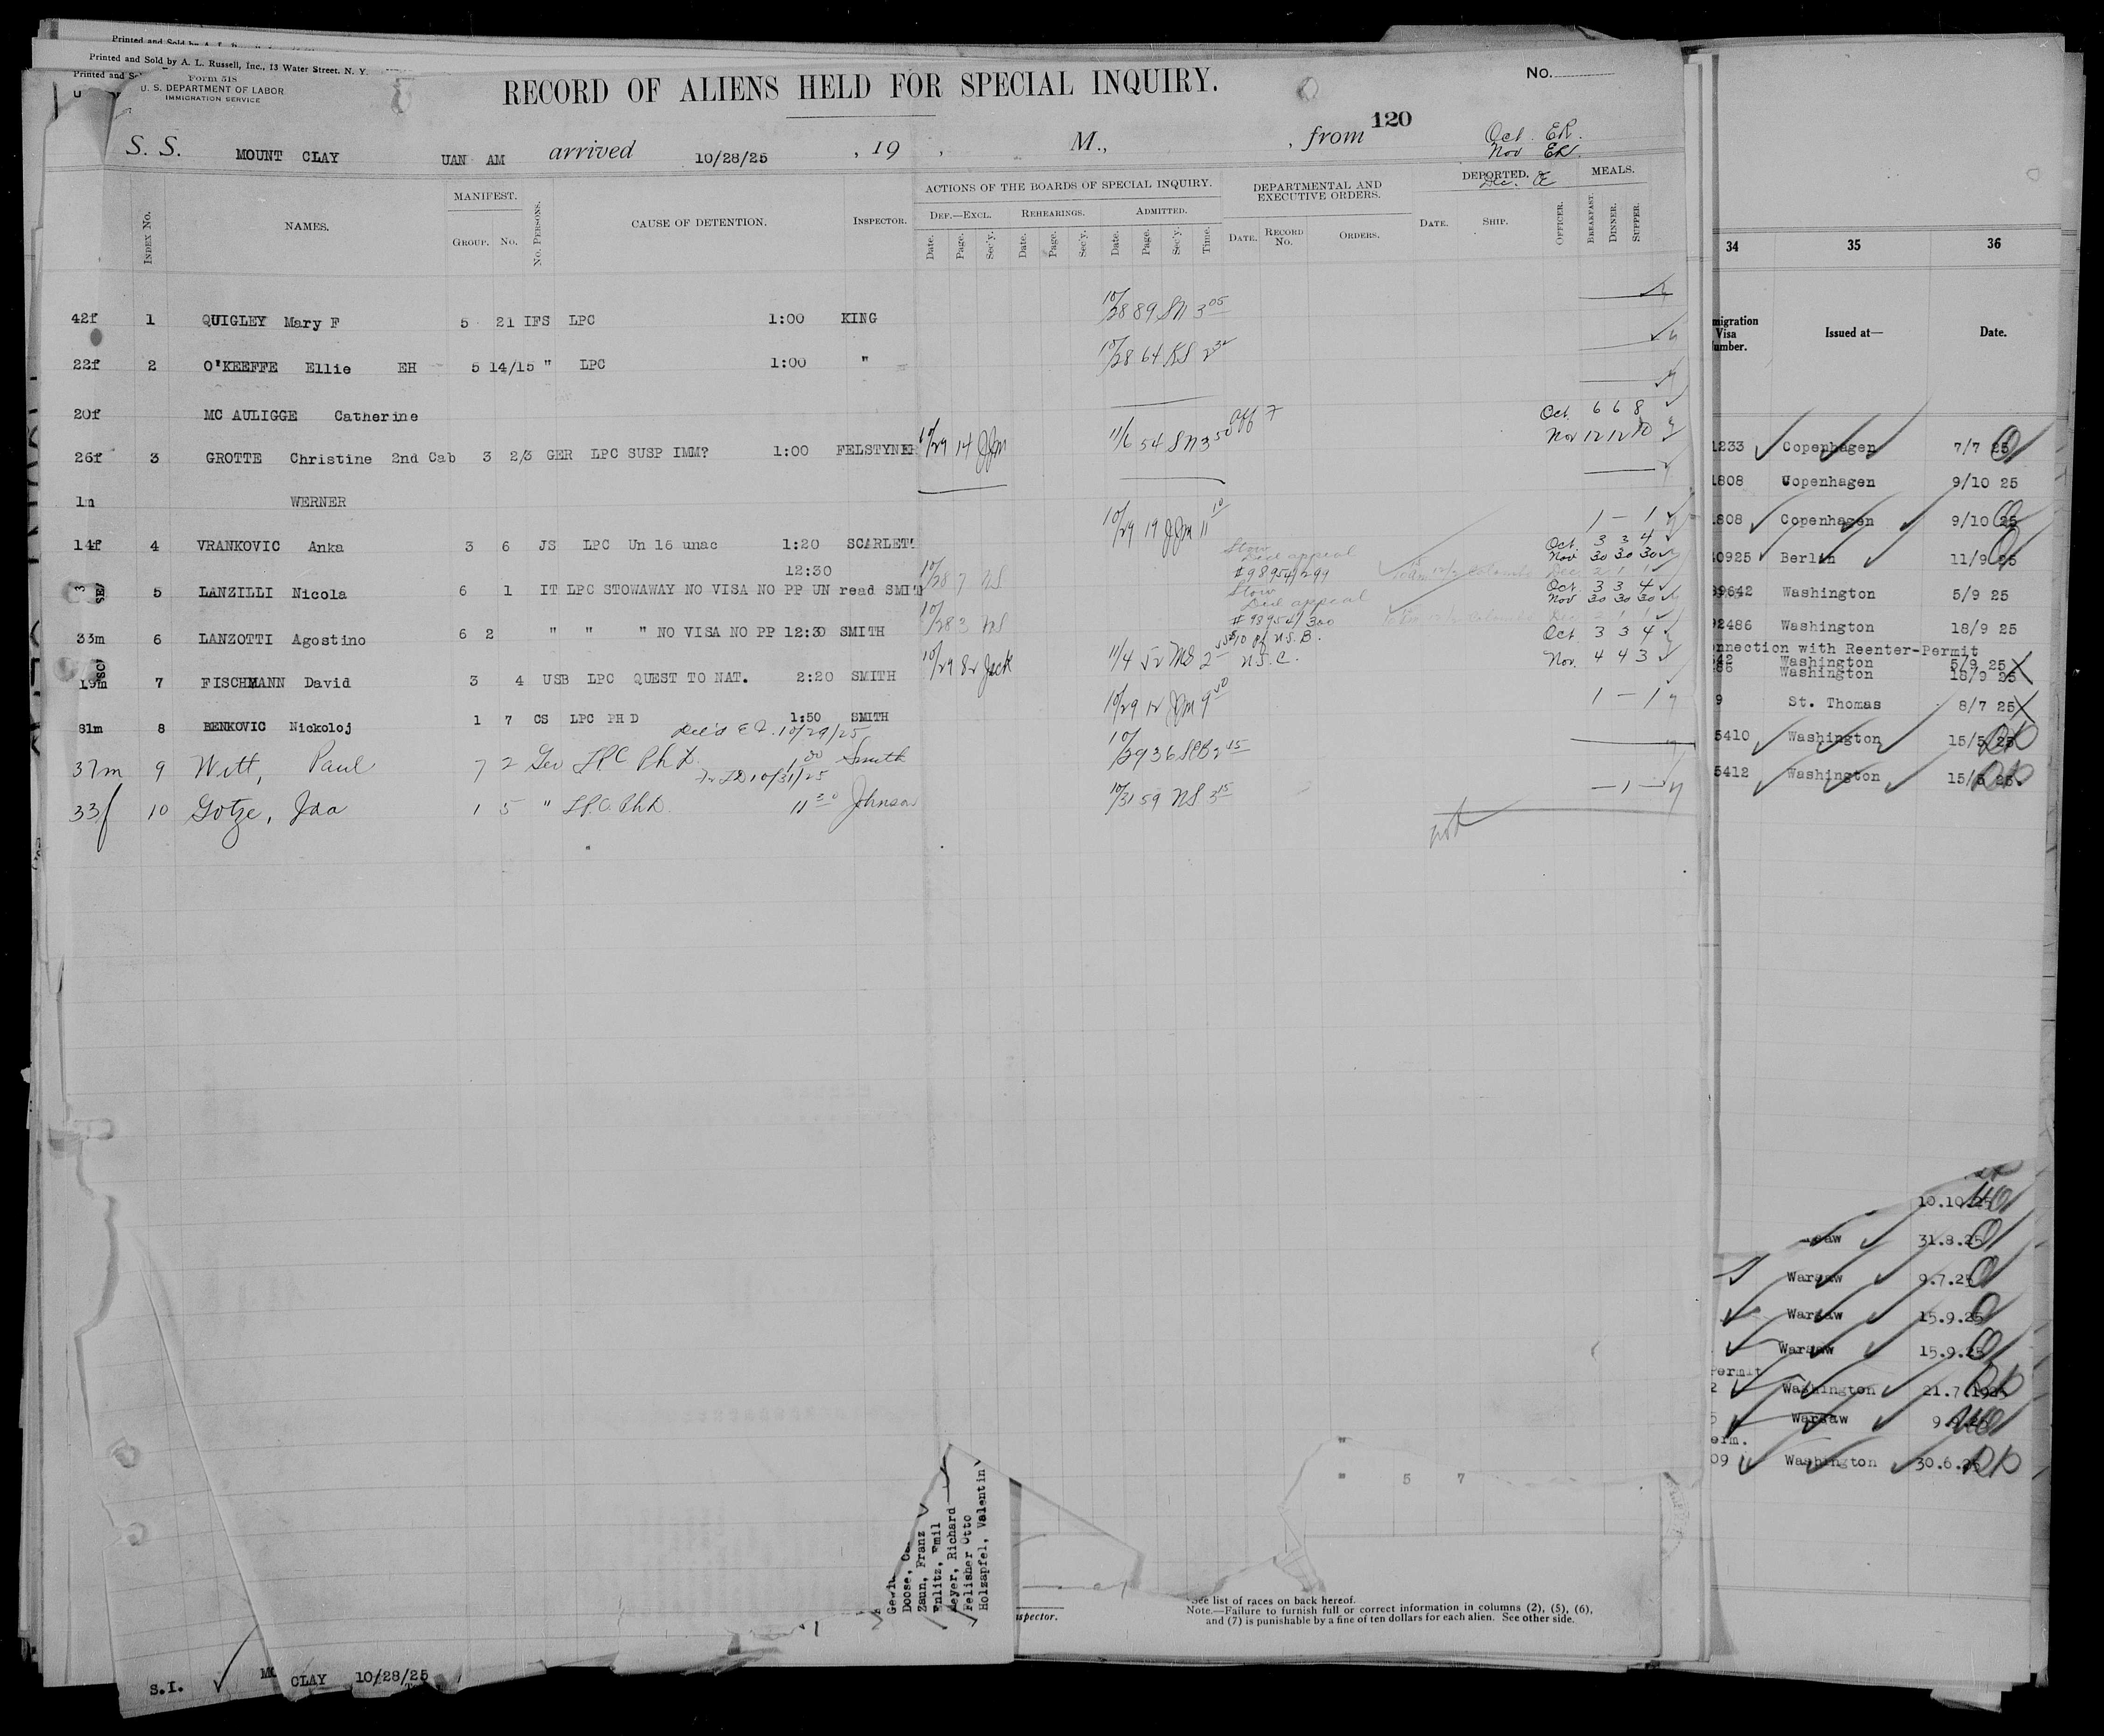 Printed and Sold by A. L. Russell, Inc., 13 Water Street, N. Y.
Form 518
U. S. DEPARTMENT OF LABOR
IMMIGRATION SERVICE
RECORD OF ALIENS HELD FOR SPECIAL INQUIRY.
No.
120
S. S. MOUNT CLAY UAN AM arrived 10/28/25 , 19 , M., , from
Oct. ER.
Nov ER.
Dec.
INDEX No. NAMES. MANIFEST. GROUP. No. No. PERSONS. CAUSE OF DETENTION. INSPECTOR.
ACTIONS OF THE BOARDS OF SPECIAL INQUIRY. DEF.—EXCL. REHEARINGS. ADMITTED.
Date. Page. Sec'y. Date. Page. Sec'y. Date. Page. Sec'y. Time.
DEPARTMENTAL AND EXECUTIVE ORDERS. DATE. RECORD No. ORDERS.
DEPORTED. DATE. SHIP. OFFICER.
MEALS. BREAKFAST. DINNER. SUPPER.
42f 1 QUIGLEY Mary F 5 21 IFS LPC 1:00 KING 10/28 89 SN 3 05
22f 2 O'KEEFFE Ellie EH 5 14/15 " LPC 1:00 " 10/28 64
20f MC AULIGGE Catherine
Oct. 6 6 8
26f 3 GROTTE Christine 2nd Cab 3 2/3 GER LPC SUSP IMM? 1:00 FELSTYNER 10/29 14 JJM 11/6 54 SN 3 50 Nov 12 12 10
1m WERNER
14f 4 VRANKOVIC Anka 3 6 JS LPC Un 16 unac 1:20 SCARLETT 10/29 19 JJM 11 10 1 — 1
Stow Oct. 3 3 4
Decl appeal Nov. 30 30 30
12:30 #98954/299
3 5 LANZILLI Nicola 6 1 IT LPC STOWAWAY NO VISA NO PP UN read SMIT 10/28 7 NS
Stow Oct. 3 3 4
Decl appeal Nov. 30 30 30
#98954/300
33m 6 LANZOTTI Agostino 6 2 " " " NO VISA NO PP 12:30 SMITH 10/28 3 NS
Oct. 3 3 4
19m 7 FISCHMANN David 3 4 USB LPC QUEST TO NAT. 2:20 SMITH 10/29 82 Jack 11/4 52 Nov. 4 4 3
81m 8 BENKOVIC Nickoloj 1 7 CS LPC PH D 1:50 SMITH 10/29 12 JJM 9 50 1 — 1
10/29/25
37m 9 Witt, Paul 7 2 Ger LPC Ph D. 1 00 Smith 10/29 36 2 15
10/31/25
33f 10 Gotze, Ida 1 5 " LPC Ph D. 11 30 Johnson 10/31 59 NS 3 15 — 1 —
34 35 36
migration Visa umber. Issued at— Date.
1233 Copenhagen 7/7 25
1808 Copenhagen 9/10 25
1808 Copenhagen 9/10 25
0925 Berlin 11/9 25
89642 Washington 5/9 25
92486 Washington 18/9 25
nnection with Reenter-Permit
Washington 5/9 25
Washington 18/9 25
9 St. Thomas 8/7 25
5410 Washington 15/5 25
5412 Washington 15/5 25
10.10.25
saw 31.8.25
Warsaw 9.7.25
Warsaw 15.9.25
Warsaw 15.9.25
ermit
2 Washington 21.7.1925
Warsaw
erm.
09 Washington 30.6.25
" 5 7
Doose,
Zaun, Franz
Enlitz, Emil
Meyer, Richard
Felisher Otto
Holzapfel, Valentin
spector.
See list of races on back hereof.
Note.—Failure to furnish full or correct information in columns (2), (5), (6),
and (7) is punishable by a fine of ten dollars for each alien. See other side.
S.I. CLAY 10/28/25